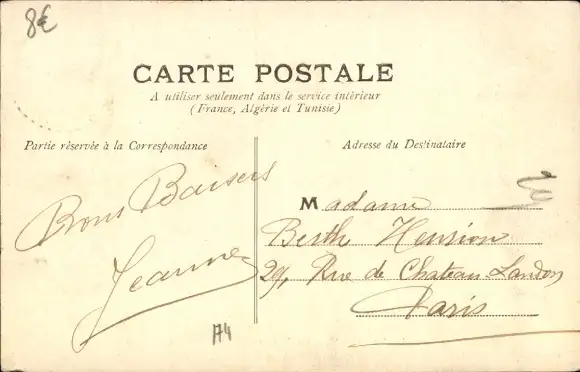 8€
CARTE POSTALE
A utiliser seulement dans le service intérieur
(France, Algérie et Tunisie)
Partie réservée à la Correspondance
Adresse du Destinataire
Bons Baisers
Jeanne
Madame
Berth Henrion
29, Rue de Chateau Landon
Paris
A4